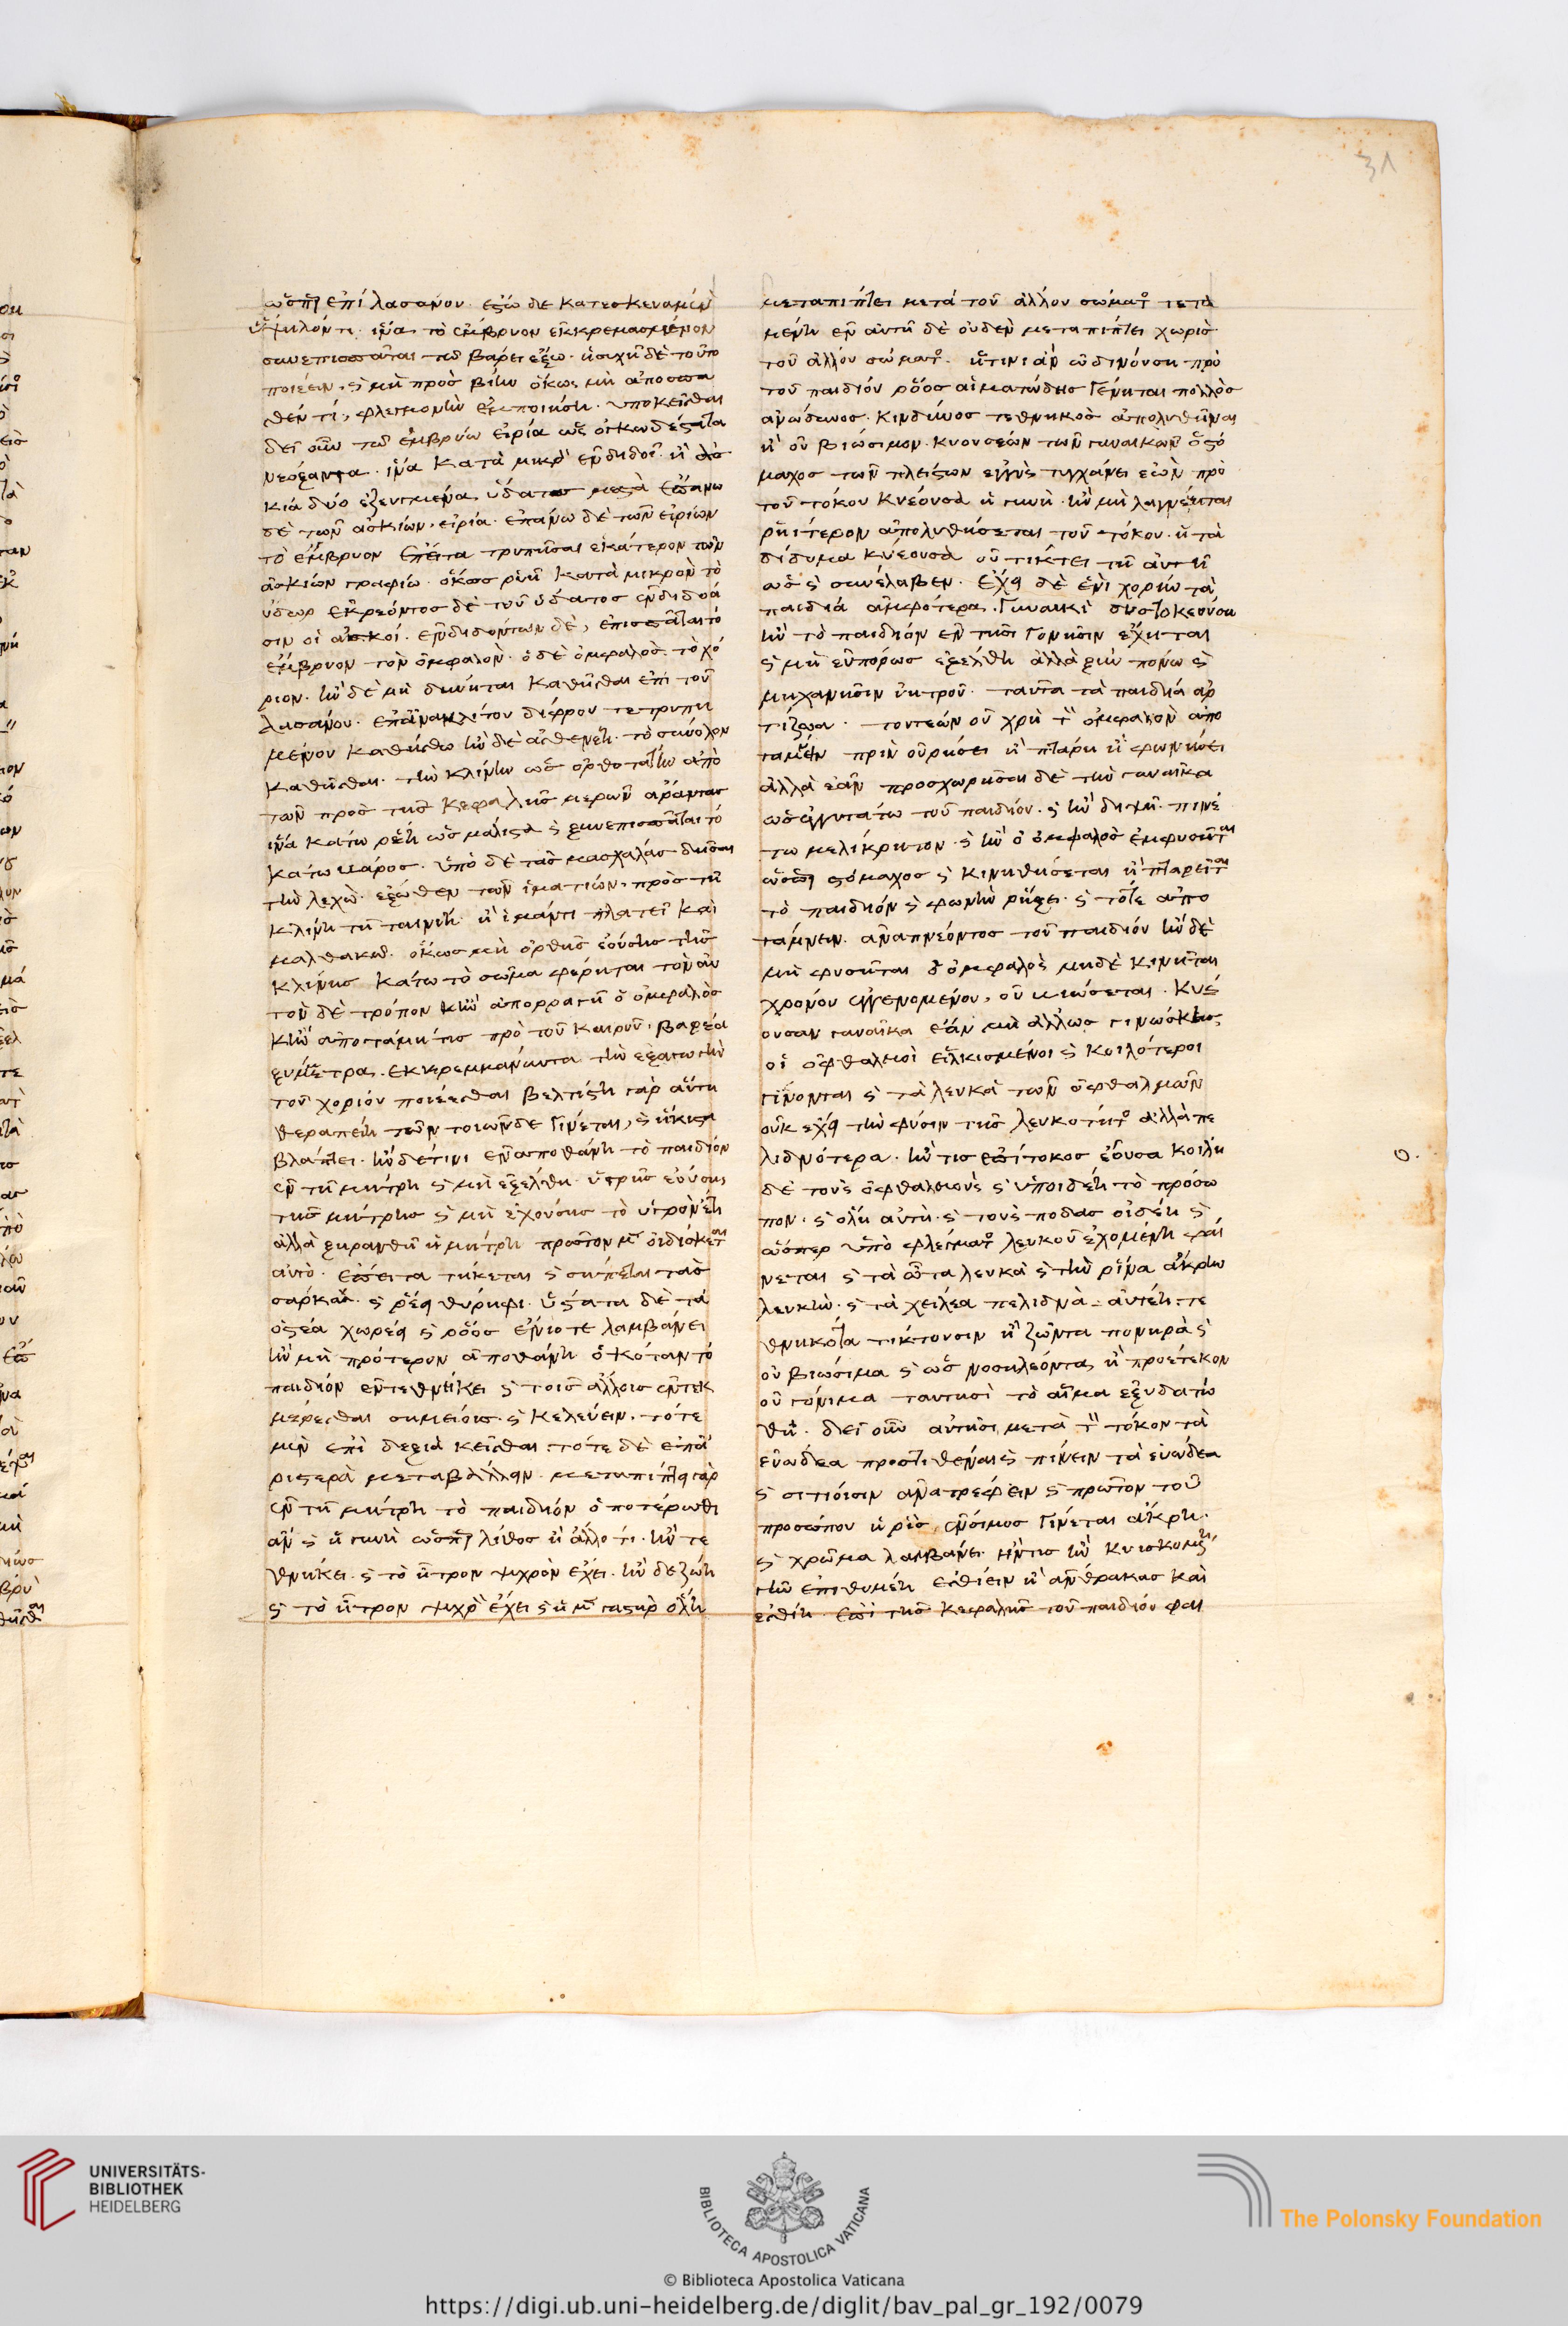 31
ὥσπερ ἐπὶ λασάνου. ἔξω δὲ κατεσκευαμένῳ
ὑψηλόν τι. ἵνα τὸ ἔμβρυον ἐκκρεμασμένον
συνεπισπᾶται τῷ βάρει ἔξω. ἡσυχῆ δὲ τοῦτο
ποιέειν, καὶ μὴ πρὸς βίην ὅκως μὴ ἀποσπα
σθέν τι, φλεγμονὴν ἐμποιήσῃ. ὑποκεῖσθαι
δεῖ οὖν τῷ ἐμβρύῳ εἰρία ὡς
νεόξαντα. ἵνα κατὰ μικρὸν ἐνδιδοῖ. ἢ ἀσ
κία δύο ἐζευγμένα, ὕδατος μεστὰ ἐπάνω
δὲ τῶν ἀσκίων, εἰρία. ἐπάνω δὲ τῶν εἰρίων
τὸ ἔμβρυον ἔπειτα τρυπῆσαι ἑκάτερον τῶν
ἀσκίων γραφίῳ. ὅκως ῥυῇ κατὰ μικρὸν τὸ
ὕδωρ ἐκρέοντος δὲ τοῦ ὕδατος ἐνδιδόα
σιν οἱ ἀσκοί. ἐνδιδόντων δὲ, ἐπισπᾶται τὸ
ἔμβρυον τὸν ὀμφαλὸν. ὁ δὲ ὀμφαλὸς τὸ χό
ριον. ἢν δὲ μὴ δύνηται καθῆσθαι ἐπὶ τοῦ
λασάνου. ἐπ' ἀνακλίτου δίφρου τετρυπη
μένου καθήσθω ἢν δὲ ἀσθενέῃ. τὸ σύνολον
καθῆσθαι. τὴν κλίνην ὡς ὀρθοτάτην ἀπὸ
τῶν πρὸς τῆς κεφαλῆς μερῶν ἄραντας
ἵνα κάτω ῥέῃ ὡς μάλιστα καὶ ξυνεπισπᾶται τὸ
κάτω βάρος. ὑπὸ δὲ τὰς μασχαλὰς δῆσαι
τὴν λεχὼ. ἔξωθεν τῶν ἱματίων, πρὸς τῇ
κλίνῃ τῇ ταινίῃ. ἢ ἱμάντι πλατεῖ καὶ
μαλθακῷ. ὅκως μὴ ὀρθῆς ἐούσης τῆς
κλίνης κάτω τὸ σῶμα φέρηται τὸν αὐ
τὸν δὲ τρόπον κἢν ἀπορραγῇ ὁ ὀμφαλὸς
κἢν ἀποτάμῃ τις πρὸ τοῦ καιροῦ, βαρέα
ξύμμετρα. ἐκκρεμμανύντα τὴν ἐξαγωγὴν
τοῦ χορίου ποιέεσθαι βελτίστη γὰρ αὕτη
θεραπείη τῶν τοιῶνδε γίνεται, καὶ ἥκιστα
βλάπτει. ἢν δέ τινι ἐναποθάνῃ τὸ παιδίον
ἐν τῇ μήτρῃ καὶ μὴ ἐξέλθῃ. ὑγρῆς ἐούσης
τῆς μήτρης καὶ μὴ ἐχούσης τὸ ὑγρὸν ἔτι
ἀλλὰ ξηρανθῇ ἡ μήτρη πρῶτον μὲν οἰδίσκεται
αὐτὸ. ἔπειτα τήκεται καὶ σήπεται τὰς
σάρκας. καὶ ῥέει θύρηφι. ὕστατα δὲ τὰ
ὀστέα χωρέει καὶ ῥόος ἐνίοτε λαμβάνει
ἢν μὴ πρότερον ἀποθάνῃ ὁκόταν τὸ
παιδίον ἐντεθνήκει καὶ τοῖς ἄλλοις ἐντεκ
μαίρεσθαι σημείοις. καὶ κελεύειν. τότε
μὲν ἐπὶ δεξιὰ κεῖσθαι τότε δὲ ἐπ' ἀ
ριστερὰ μεταβάλλειν. μεταπίπτει γὰρ
ἐν τῇ μήτρῃ τὸ παιδίον ὁποτέρωθι
ἂν καὶ ἡ γυνὴ ὥσπερ λίθος ἢ ἄλλο τι. ἢν τε
θνήκει. καὶ τὸ ἦτρον ψυχρὸν ἔχει. ἢν δὲ ζώῃ
καὶ τὸ ἦτρον ψυχρὸν ἔχει καὶ ἡ μὲν γαστὴρ ὅλη
μεταπίπτει μετὰ τοῦ ἄλλου σώματος τετα
μένη ἐν αὐτῇ δὲ οὐδὲν μεταπίπτει χωρὶς
τοῦ ἄλλου σώματος. ᾗτινι ἂν ὠδινούσῃ πρὸ
τοῦ παιδίου ῥόος αἱματώδης γένηται πολλὸς
ἀνώδυνος. κίνδυνος τεθνηκὸς ἀπολυθῆναι
ἢ οὐ βιώσιμον. κυουσέων τῶν γυναικῶν ὁ στό
μαχος τῶν πλείστων ἐγγὺς τυγχάνει ἐὼν πρὸ
τοῦ τόκου κυέουσα ἡ γυνὴ. ἢν μὴ λαγνεύηται
ῥηίτερον ἀπολυθήσεται τοῦ τόκου. ἡ τὰ
δίδυμα κυέουσα οὐ τίκτει τῇ αὐτῇ
ὡς καὶ συνέλαβεν. ἔχει δὲ ἑνὶ χορίῳ τὰ
παιδία ἀμφότερα. γυναικὶ δυστοκεούσῃ
ἢν τὸ παιδίον ἐν τῇσι γονῇσιν ἔχηται
καὶ μὴ εὐπόρως ἐξέλθῃ ἀλλὰ ξὺν πόνῳ καὶ
μηχανῇσιν ἰητροῦ. ταῦτα τὰ παιδία ἀρ
τίζωα. τουτέων οὐ χρὴ τὸν ὀμφαλὸν ἀπο
ταμεῖν πρὶν οὐρήσει ἢ πταρῇ ἢ φωνήσει
ἀλλὰ ἐᾶν προσχωρῆσαι δὲ τὴν γυναῖκα
ὡς ἐγγυτάτω τοῦ παιδίου. καὶ ἢν διψῇ. πινέ
τω μελίκρητον. καὶ ἢν ὁ ὀμφαλὸς ἐμφυσῆται
ὥσπερ στόμαχος καὶ κινηθήσεται ἢ πταρεῖται
τὸ παιδίον καὶ φωνὴν ῥήξει. καὶ τότε ἀπο
τάμνειν. ἀναπνέοντος τοῦ παιδίου ἢν δὲ
μὴ φυσῆται ὁ ὀμφαλὸς μηδὲ κινῆται
χρόνου ἐγγενομένου, οὐ βιώσεται. κυέ
ουσαν γυναῖκα ἐὰν μὴ ἄλλως γινώσκῃς
οἱ ὀφθαλμοὶ εἱλκυσμένοι καὶ κοιλότεροι
γίνονται καὶ τὰ λευκὰ τῶν ὀφθαλμῶν
οὐκ ἔχει τὴν φύσιν τῆς λευκότητος ἀλλὰ πε
λιδνότερα. ἤν τις ἐπίτοκος ἐοῦσα κοίλη
δὲ τοὺς ὀφθαλμοὺς καὶ ὑποιδέῃ τὸ πρόσω
πον. καὶ ὅλη αὐτὴ. καὶ τοὺς πόδας οἰδέῃ καὶ
ὥσπερ ὑπὸ φλέγματος λευκοῦ ἐχομένη φαί
νεται καὶ τὰ ὦτα λευκὰ καὶ τὴν ῥῖνα ἄκρην
λευκὴν. καὶ τὰ χείλεα πελιδνὰ. αὗται τε
θνηκότα τίκτουσιν ἢ ζῶντα πονηρὰ καὶ
οὐ βιώσιμα καὶ ὡς νοσηλεύοντα, ἢ προέτεκον
οὐ γόνιμα ταύτῃσι τὸ αἷμα ἐξυδατώ
θη. δεῖ οὖν αὐτῇσι μετὰ τὸν τόκον τὰ
εὐώδεα προστιθέναι καὶ πίνειν τὰ εὐώδεα
καὶ σιτίοισιν ἀνατρέφειν καὶ πρῶτον τοῦ
προσώπου ἡ ῥὶς ἐνόσιμος γίνεται ἄκρη.
καὶ χρῶμα λαμβάνει.
γῆν ἐπιθυμέῃ ἐσθίειν ἢ ἄνθρακας καὶ
ἐσθίῃ. ἐπὶ τῆς κεφαλῆς τοῦ παιδίου φαί
UNIVERSITÄTS-
BIBLIOTHEK
HEIDELBERG
BIBLIOTECA APOSTOLICA VATICANA
The Polonsky Foundation
© Biblioteca Apostolica Vaticana
https://digi.ub.uni-heidelberg.de/diglit/bav_pal_gr_192/0079